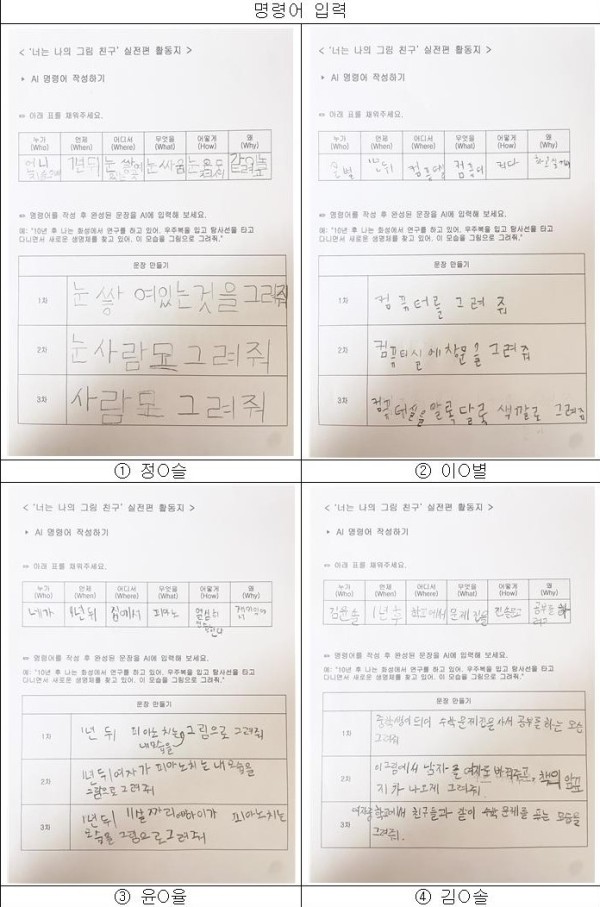 명령어 입력
< '너는 나의 그림 친구' 실전편 활동지 >
▶ AI 명령어 작성하기
✏ 아래 표를 채워주세요.
누가 언제 어디서 무엇을 어떻게 왜
(Who) (When) (Where) (What) (How) (Why)
1년 뒤
✏ 명령어를 작성 후 완성된 문장을 AI에 입력해 보세요.
예: "10년 후 나는 화성에서 연구를 하고 있어. 우주복을 입고 탐사선을 타고
다니면서 새로운 생명체를 찾고 있어. 이 모습을 그림으로 그려줘."
문장 만들기
1차 눈 쌓여있는것을 그려줘
2차 눈사람모 그려줘
3차 사람모 그려줘
① 정O슬
< '너는 나의 그림 친구' 실전편 활동지 >
▶ AI 명령어 작성하기
✏ 아래 표를 채워주세요.
누가 언제 어디서 무엇을 어떻게 왜
(Who) (When) (Where) (What) (How) (Why)
✏ 명령어를 작성 후 완성된 문장을 AI에 입력해 보세요.
예: "10년 후 나는 화성에서 연구를 하고 있어. 우주복을 입고 탐사선을 타고
다니면서 새로운 생명체를 찾고 있어. 이 모습을 그림으로 그려줘."
문장 만들기
1차 컴퓨터를 그려 줘
2차 컴퓨터실에 창문을 그려줘
3차 컴퓨터실을 알록달록 색깔로 그려줘
② 이O별
< '너는 나의 그림 친구' 실전편 활동지 >
▶ AI 명령어 작성하기
✏ 아래 표를 채워주세요.
누가 언제 어디서 무엇을 어떻게 왜
(Who) (When) (Where) (What) (How) (Why)
내가 1년 뒤 집에서 피아노 열심히
✏ 명령어를 작성 후 완성된 문장을 AI에 입력해 보세요.
예: "10년 후 나는 화성에서 연구를 하고 있어. 우주복을 입고 탐사선을 타고
다니면서 새로운 생명체를 찾고 있어. 이 모습을 그림으로 그려줘."
문장 만들기
1차 1년 뒤 피아노치는 내모습을 그림으로 그려줘
2차 1년뒤 여자가 피아노치는 내 모습을
그림으로 그려줘
3차 1년뒤 11살 짜리 여자아이가 피아노치는
모습을 그림으로 그려줘
③ 윤O율
< '너는 나의 그림 친구' 실전편 활동지 >
▶ AI 명령어 작성하기
✏ 아래 표를 채워주세요.
누가 언제 어디서 무엇을 어떻게 왜
(Who) (When) (Where) (What) (How) (Why)
김윤솔 1년 후 학교에서 문제집을 공부를 하
✏ 명령어를 작성 후 완성된 문장을 AI에 입력해 보세요.
예: "10년 후 나는 화성에서 연구를 하고 있어. 우주복을 입고 탐사선을 타고
다니면서 새로운 생명체를 찾고 있어. 이 모습을 그림으로 그려줘."
문장 만들기
1차 중학생이 되어 수학 문제집을 사서 공부를 하는 모습
그려줘
2차 이 그림에서 남자를 여자로 바꿔주고, 책의 앞표
지가 나오게 그려줘.
3차 여자중학교에서 친구들과 같이 수학 문제를 푸는 모습을
그려줘.
④ 김O솔